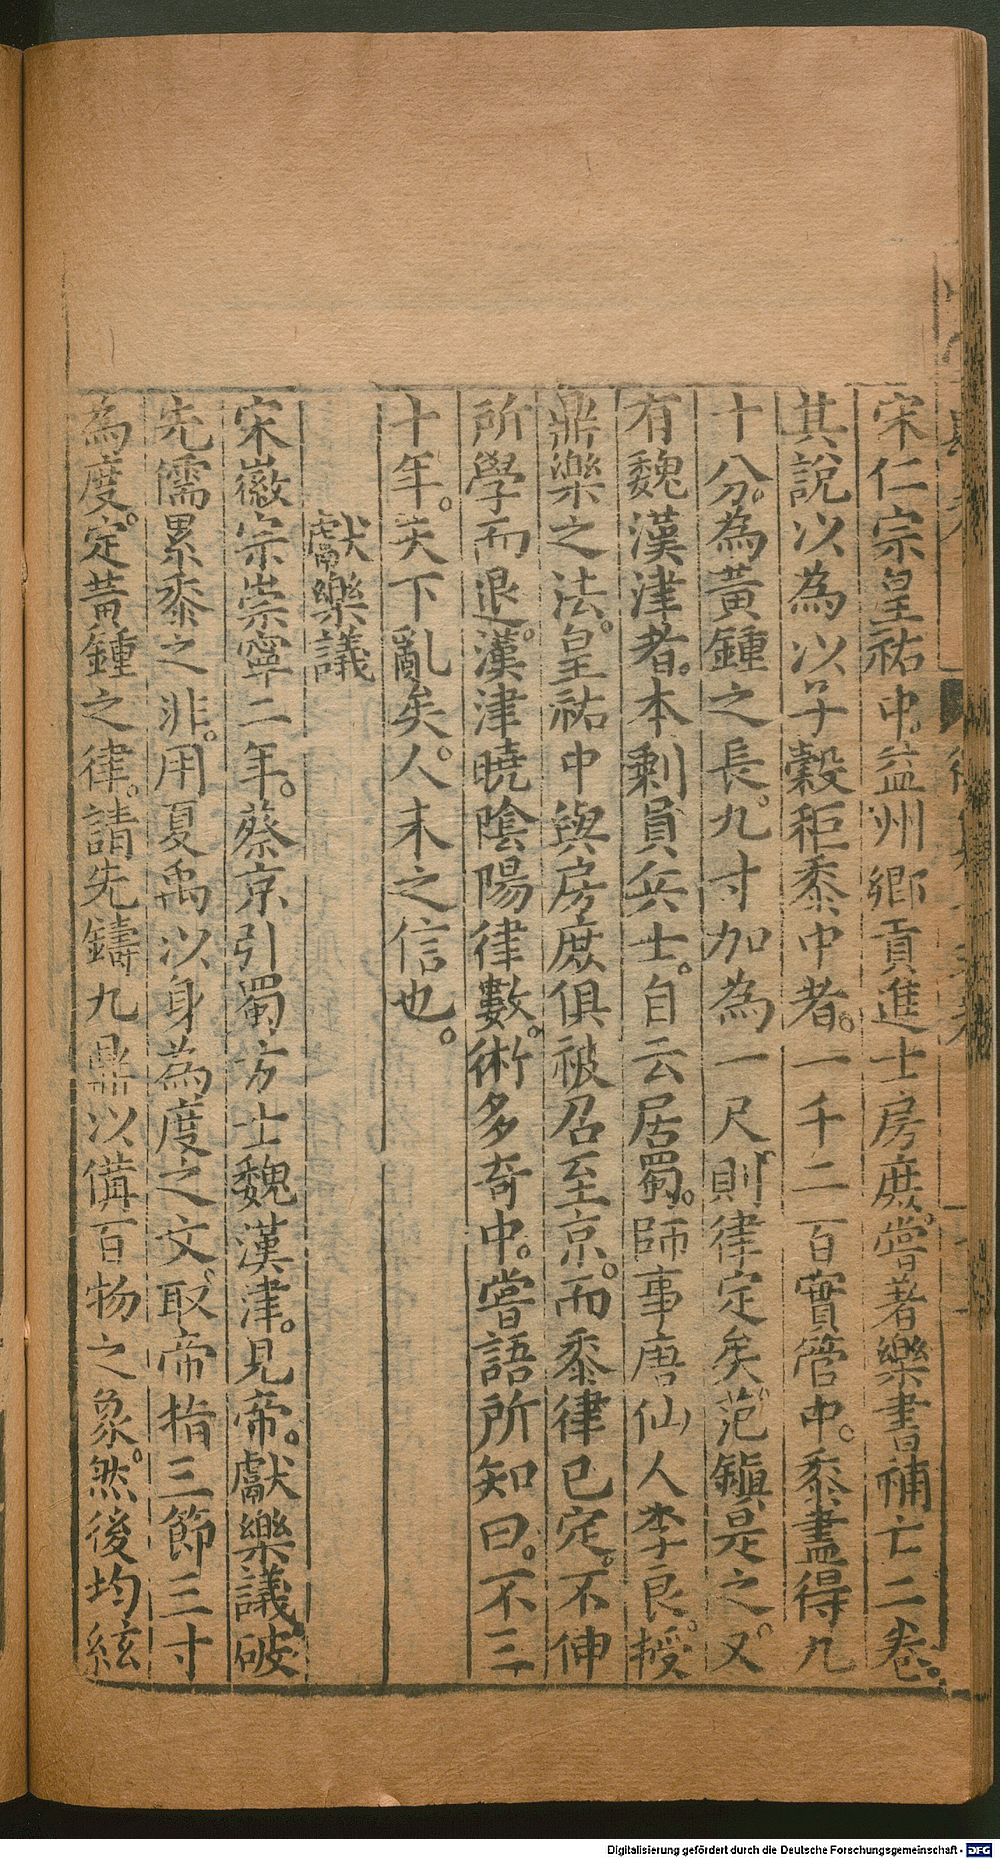 宋仁宗皇祐中。益州鄉貢進士房庶。嘗著樂書補亡二卷。
其說以為以子穀秬黍中者。一千二百實管中。黍盡得九
十分。為黃鍾之長。九寸加為一尺。則律定矣。范鎮是之。又
有魏漢津者。本剩員兵士。自云居蜀。師事唐仙人李良。授
鼎樂之法。皇祐中與房庶俱被召至京。而黍律已定。不伸
所學而退。漢津曉陰陽律數。術多奇中。嘗語所知曰。不三
十年。天下亂矣。人未之信也。
獻樂議
宋徽宗崇寧二年。蔡京引蜀方士魏漢津。見帝。獻樂議。破
先儒累黍之非。用夏禹以身為度之文。取帝指三節三寸
為度。定黃鍾之律。請先鑄九鼎以備百物之象。然後均絃
Digitalisierung gefördert durch die Deutsche Forschungsgemeinschaft - DFG